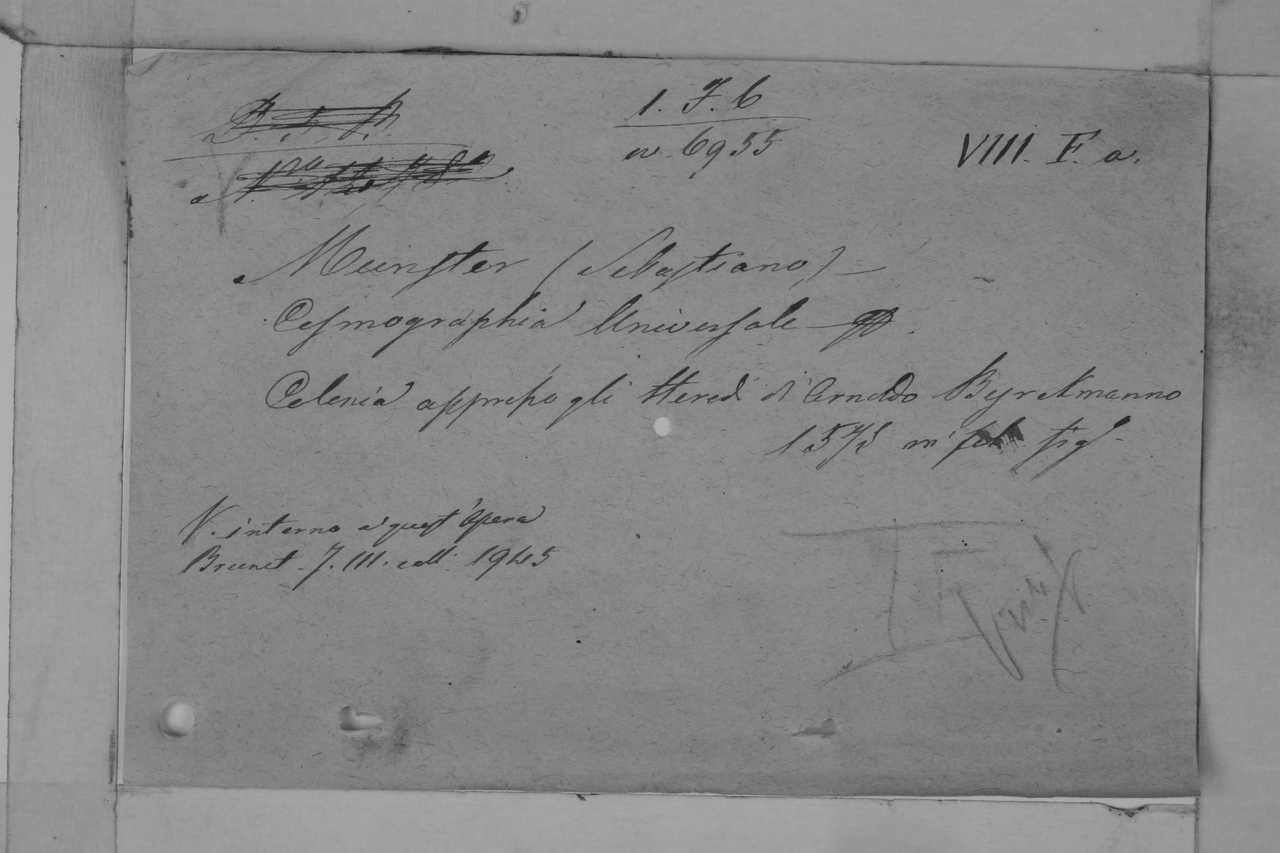 1. F. 6
n. 6955
VIII. F. a.
Munster (Sebastiano)
Cosmographia Universale
Colonia appresso gli Heredi di Arnoldo Byrckmanno
1575 in fol. fig.
V. intorno a quest'opera
Brunet. T. III. coll. 1945